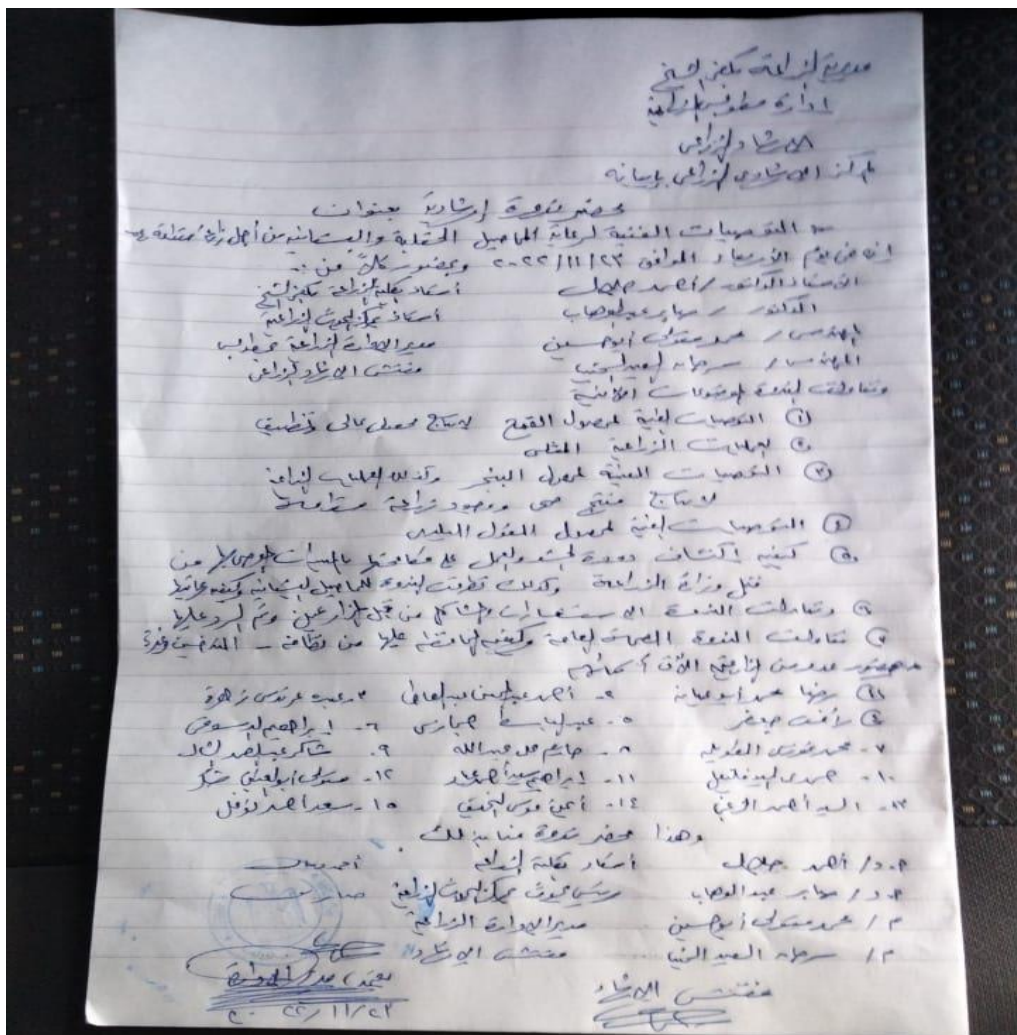 مديرية الزراعة بكفر الشيخ
إدارة مطوبس الزراعية
الإرشاد الزراعى
المركز الإرشادى الزراعى
محضر ندوة إرشادية بعنوان
التوصيات الفنية لرعاية المحاصيل الحقلية والبستانية من أجل زراعة مستدامة
انه فى يوم الأربعاء الموافق ٢٠٢٢/١١/٢٣ وبحضور كلاً من :-
الأستاذ الدكتور / أحمد جلال أستاذ بكلية الزراعة بكفر الشيخ
الدكتور / صابر عبد الوهاب أستاذ بمركز البحوث الزراعية
المهندس / محمد متولى أبو حسين مدير الإدارة الزراعية بمطوبس
المهندس / السيد مفتش الإرشاد الزراعى
وتناولت الندوة الموضوعات الآتية
① التوصيات الفنية لمحصول القمح لإنتاج محصول عالى ونظيف
٢ العمليات الزراعية المثلى
③ التوصيات الفنية لمحصول البنجر وكذلك العمليات الزراعية
لإنتاج منتج صحى ووجود زراعة مستدامة
④ التوصيات الفنية لمحصول الفول البلدى
⑤ كيفية اكتشاف دودة الحشد والعمل على مكافحتها بالمبيدات الموصى بها من
قبل وزارة الزراعة وكذلك تطرقت الندوة للمحاصيل البستانية وكيفية
٦ وتناولت الندوة الاستفسارات والمشاكل من قبل المزارعين وتم الرد عليها
٧ تناولت الندوة الصحة العامة وكيفية المحافظة عليها من نظافة - التدخين وغيرة
بحضور عدد من المزارعين الآتى أسمائهم
① رضا محمد ٢- أحمد عبد العاطى ٣- عبده زهرة
④ رأفت جعفر ٥- عبد الباسط ٦- إبراهيم الدسوقى
٧- محمد ٨- حاتم عبد الله ٩- شاكر
١٠- حمدى السيد ١١- إبراهيم سيد أحمد ١٢- متولى
١٣- السيد أحمد ١٤- أيمن ١٥- سعد أحمد نوفل
وهذا محضر ندوة منا بذلك
أ.د/ أحمد جلال أستاذ بكلية الزراعة أحمد جلال
أ.د/ صابر عبد الوهاب رئيس بحوث بمركز البحوث الزراعية صابر
م / محمد متولى أبو حسين مدير الإدارة الزراعية
م / السيد مفتش الإرشاد
يعتمد مدير الإدارة
مفتش الإرشاد
٢٠٢٢/١١/٢٣